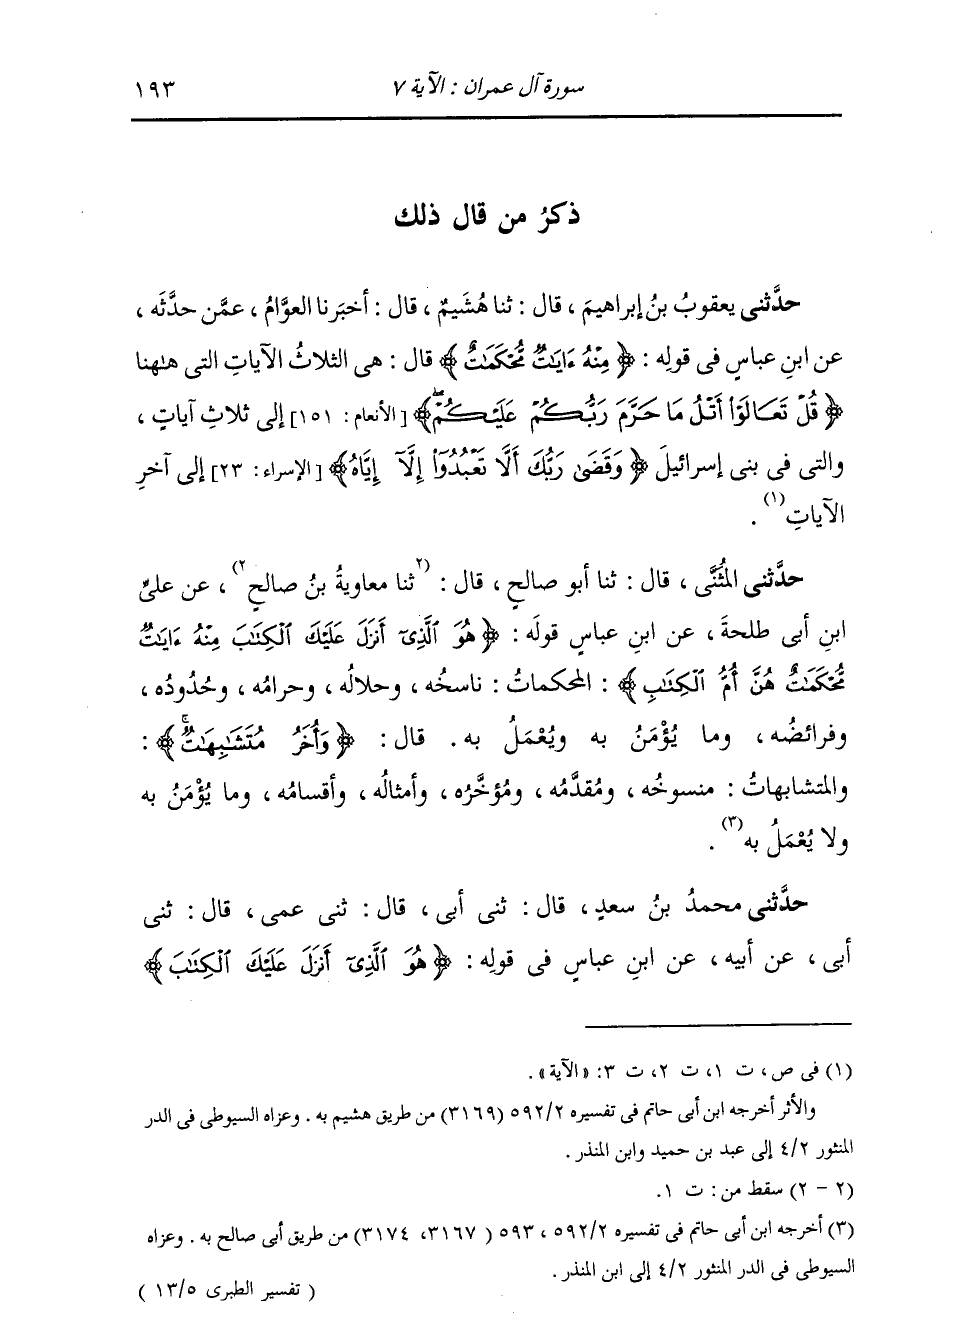 سورة آل عمران : الآية ٧ ١٩٣
ذكرُ من قال ذلك
حدَّثنى يعقوبُ بنُ إبراهيمَ ، قال : ثنا هُشَيمٌ ، قال : أخبَرنا العوَّامُ ، عمَّن حدثَّه ،
عن ابنِ عباسٍ فى قولِه : ﴿ مِنْهُ ءَايَٰتٌ مُّحْكَمَٰتٌ ﴾ قال : هى الثلاثُ الآياتِ التى هٰهنا
﴿ قُلْ تَعَالَوْا۟ أَتْلُ مَا حَرَّمَ رَبُّكُمْ عَلَيْكُمْ ۖ ﴾ [ الأنعام : ١٥١ ] إلى ثلاثِ آياتٍ ،
والتى فى بنى إسرائيلَ ﴿ وَقَضَىٰ رَبُّكَ أَلَّا تَعْبُدُوٓا۟ إِلَّآ إِيَّاهُ ﴾ [ الإسراء : ٢٣ ] إلى آخرِ
الآياتِ (١) .
حدَّثنى المُثَنَّى ، قال : ثنا أبو صالحٍ ، قال : (٢ ثنا معاويةُ بنُ صالحٍ ٢) ، عن علىِّ
ابنِ أبى طلحةَ ، عن ابنِ عباسٍ قولَه : ﴿ هُوَ ٱلَّذِىٓ أَنزَلَ عَلَيْكَ ٱلْكِتَٰبَ مِنْهُ ءَايَٰتٌ
مُّحْكَمَٰتٌ هُنَّ أُمُّ ٱلْكِتَٰبِ ﴾ : المحكماتُ : ناسخُه ، وحلالُه ، وحرامُه ، وحُدُودُه ،
وفرائضُه ، وما يُؤْمَنُ به ويُعْمَلُ به . قال : ﴿ وَأُخَرُ مُتَشَٰبِهَٰتٌ ۖ ﴾ :
والمتشابهاتُ : منسوخُه ، ومُقدَّمُه ، ومُؤخَّرُه ، وأمثالُه ، وأقسامُه ، وما يُؤْمَنُ به
ولا يُعْمَلُ به (٣) .
حدَّثنى محمدُ بنُ سعدٍ ، قال : ثنى أبى ، قال : ثنى عمى ، قال : ثنى
أبى ، عن أبيه ، عن ابنِ عباسٍ فى قولِه : ﴿ هُوَ ٱلَّذِىٓ أَنزَلَ عَلَيْكَ ٱلْكِتَٰبَ ﴾
(١) فى ص ، ت ١ ، ت ٢ ، ت ٣ : « الآية » .
والأثر أخرجه ابن أبى حاتم فى تفسيره ٥٩٢/٢ (٣١٦٩) من طريق هشيم به . وعزاه السيوطى فى الدر
المنثور ٤/٢ إلى عبد بن حميد وابن المنذر .
(٢ - ٢) سقط من : ت ١ .
(٣) أخرجه ابن أبى حاتم فى تفسيره ٥٩٢/٢ ، ٥٩٣ ( ٣١٦٧ ، ٣١٧٤) من طريق أبى صالح به . وعزاه
السيوطى فى الدر المنثور ٤/٢ إلى ابن المنذر .
( تفسير الطبرى ١٣/٥ )